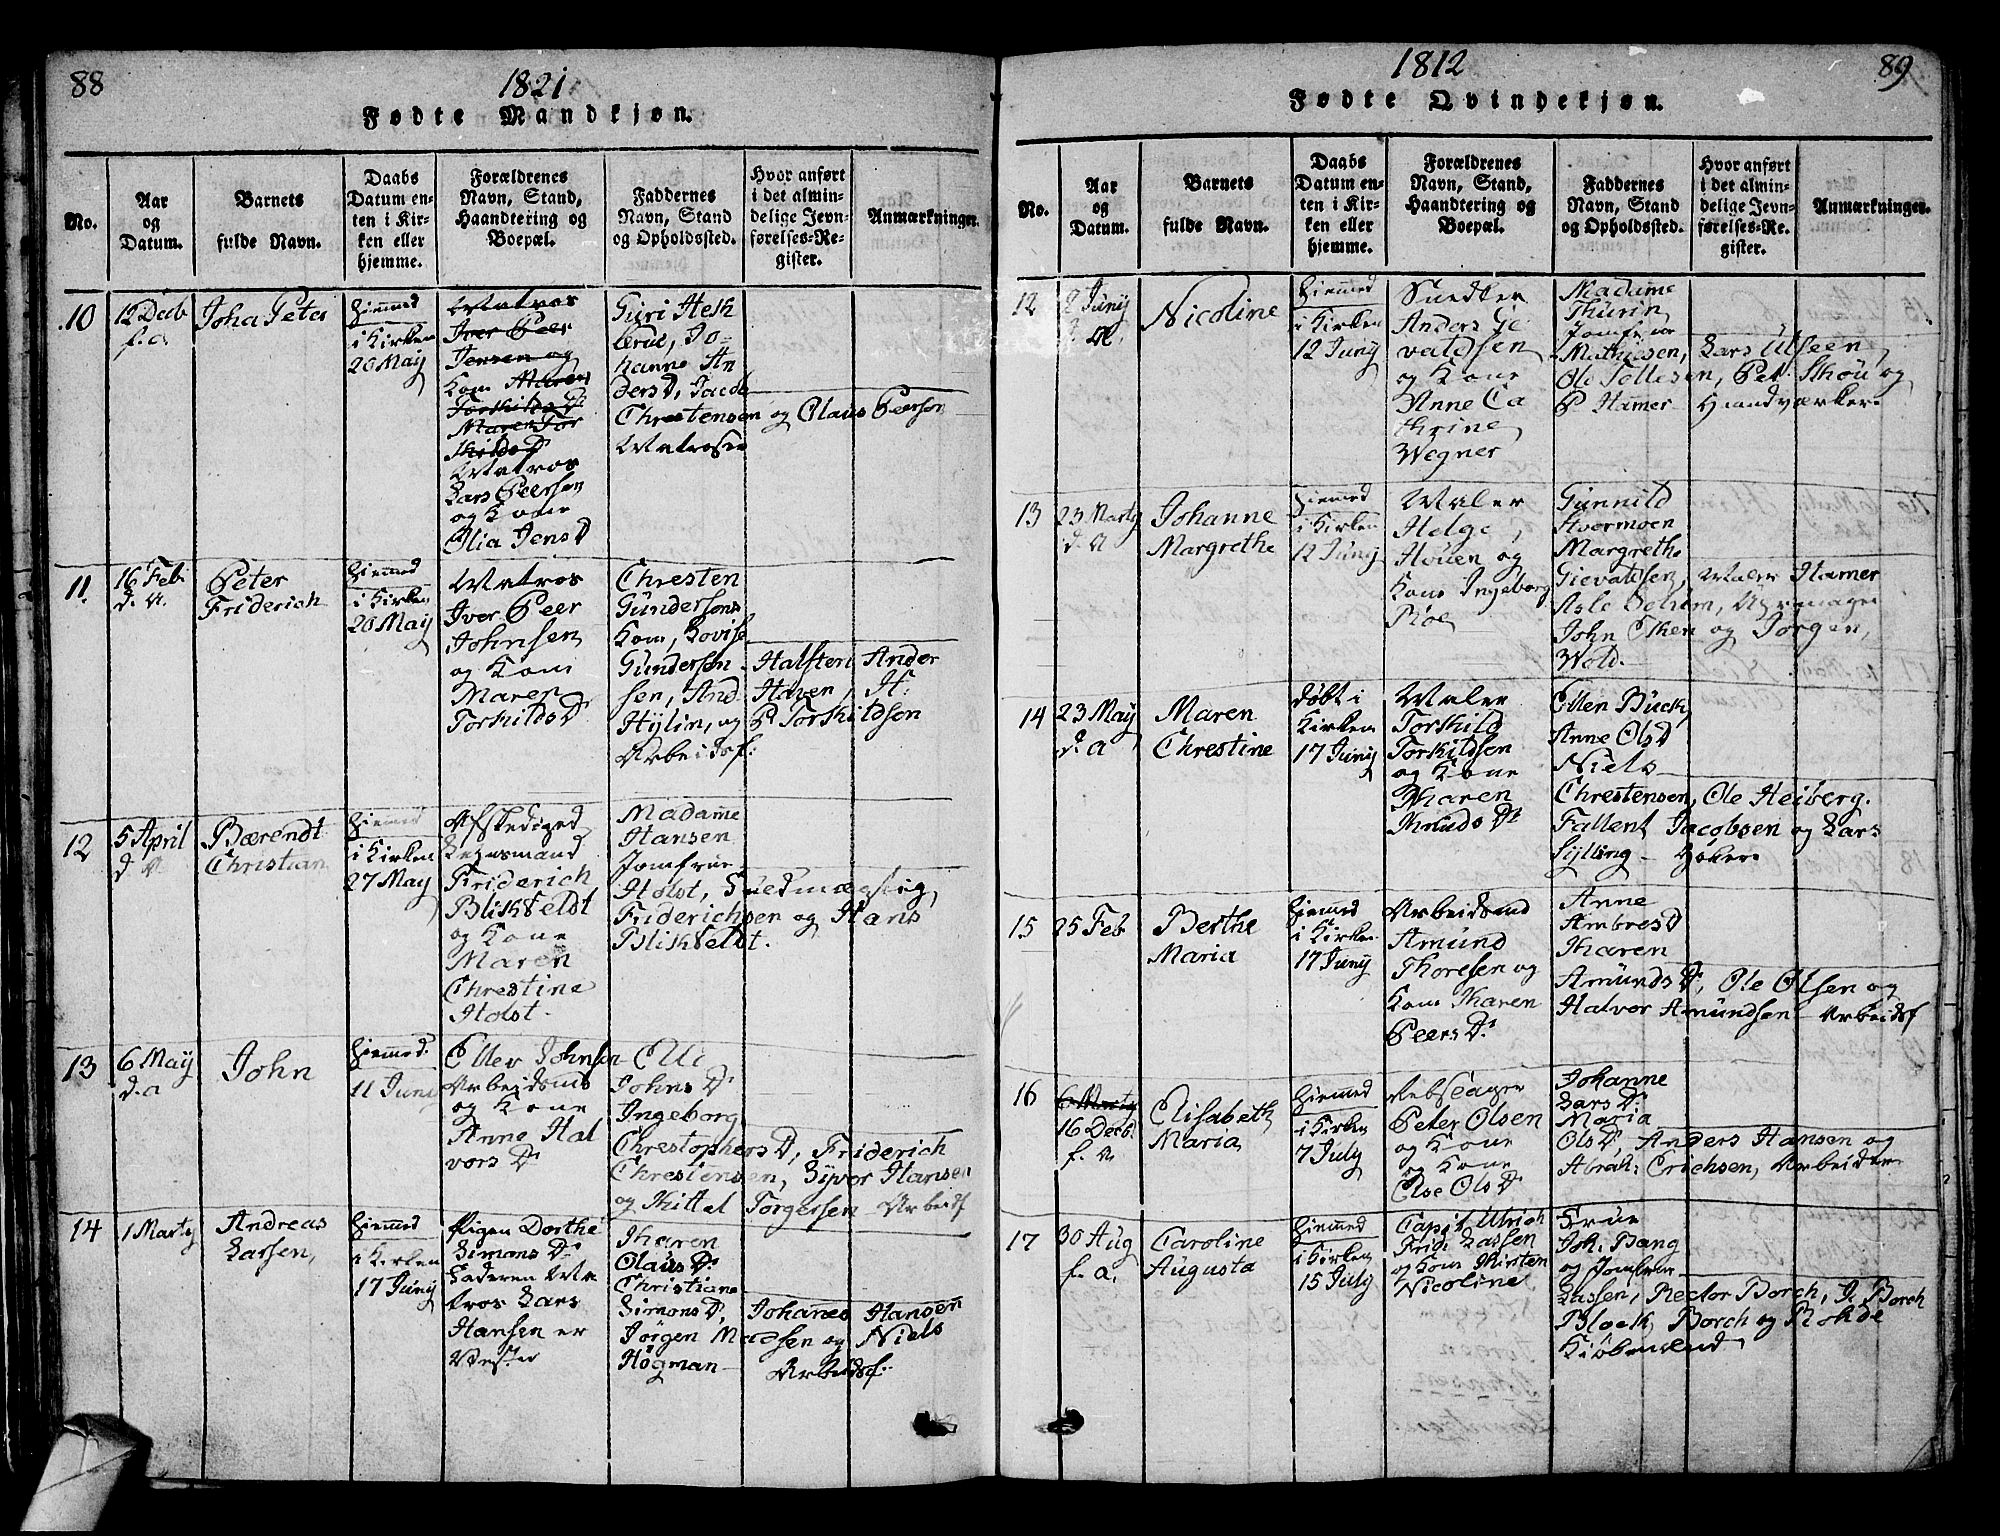 88
1821
Fødte Mandkjøn.
No.
Aar
og
Datum.
Barnets
fulde Navn.
Daabs
Datum en-
ten i Kir-
ken eller
hjemme.
Forældrenes
Navn, Stand,
Haandtering og
Boepæl.
Faddernes
Navn, Stand
og Opholdssted.
Hvor anført
i det almin-
delige Jevn-
førelses-Re-
gister.
Anmærkninger.
10
12 Decb
f. a.
Joha Peter
Hiemmed
i Kirken
20 May
Matros
Iver Peer
Jensen og
Kone Maren
Torkilds D.
Maren Tor
kilds D.
Matros
Lars Peersen
og Kone
Olia Jens D.
Guri Helk
Erud, Jo-
hanne An
ders D, Jacob
Chrestensen og Olaus Peersen
Matroser
11.
16 Feb
d. A.
Peter
Friderich
Hiemmed
i Kirken
20 May
Matros
Iver Peer
Johnsen
og Kone
Maren
Torkilds D.
Chresten
Gundersens
Kone, Lovise
Gundersen. Halsten Ander
sen, And Haven, H:
Hylin, og P Torkildsen
Arbeidsf.
12
5 April
d. A
Bærendt
Christian
Hiemmed
i Kirken
27 May
Afskediget
Friderich
Blikfeldt
og Kone
Maren
Chrestine
Holst.
Madame
Hansen
Jomfrue
Holst,
Friderichsen og Hans
Blikfeldt.
13
6 May
d. a
John
Hiemmed.
11 Juny
Eller Johnsen
Arbeidsmd
og Kone
Anne Hal
vors D.
Elli
Johns D.
Ingeborg
Chrestophers D, Friderich
Chrestensen, Syver Hansen
og Kittel Torgersen Arbeidsf
14
1 Marty
Andreas
Larsen,
Hiemmed
i Kirken
17 Juny
Pigen Dorthe
Simons D.
Faderen Ma
tros Lars
Hansen er
Karen
Olaus D.
Christiane
Simons D, Johanes Hansen
Jørgen Madsen og Niels
Högman Arbeidsf.
1812
89
Fødte Qvindekjøn.
No.
Aar
og
Datum.
Barnets
fulde Navn.
Daabs
Datum en-
ten i Kir-
ken eller
hjemme.
Forældrenes
Navn, Stand,
Haandtering og
Boepæl.
Faddernes
Navn, Stand
og Opholdssted.
Hvor anført
i det almin-
delige Jevn-
førelses-Re-
gister.
Anmærkninger.
12
2 Juny
A.
Nicoline
Hiemmed
i Kirken
12 Juny
Snedker
Anders Gie
valdsen
og Kone
Anne Ca
thrine
Wegner
Madame
Thurin
Jomfrue
Mathiesen, Lars Ulseen,
Ole Tollesen, Pet. Skou og
P Hamer Haandværker.
13
23 Marty
d. A
Johanne
Margrethe
Hiemmed
i Kirken
12 Juny
Maler
Helge
Houen og
Kone Ingeborg
Roe
Gunnild
Hvermoen
Margrethe
Gievaldsen, Maler Hamer
Aslo
John Eken og Jørgen,
Wold.
14
23 May
d. a
Maren
Chrestine
døbt i
Kirken
17 Juny
Maler
Torkild
Torkildsen
og Kone
Karen
Knuds D.
Ellen Buck,
Anne Ols D
Niels
Chrestensen, Ole Heiberg.
Fallent Jacobsen og Lars
Sylling - Høker.
15
25 Feb
Berthe
Maria
Hiemmed
i Kirken
17 Juny
Arbeidsmd
Amund
Thoresen og
Kone Karen
Peers D.
Anne
Ambres D
Karen
Amunds D, Ole Olsen og
Halvor Amundsen Arbeidsf
16
6 Marty
16 Decb.
f. A
Elisabeth
Maria
Hiemmed
i Kirken
7 July
Rebslager
Peter Olsen
og Kone
og Kone
Else Ols D.
Johanne
Lars D.
Maria
Ols D, Anders Hansen og
Abrah: Erichsen, Arbeider
17
30 Aug
f. a.
Caroline
Augusta
Hiemmed
i Kirken
15 July
Capit Ulrich
Frid. Lassen
og Kone Kirsten
Nicoline
Frue
Joh. Bang
og Jomfrue
Lassen, Rector Borch, J. Borch
Block, Borch og Rohde
Kiøbmænd